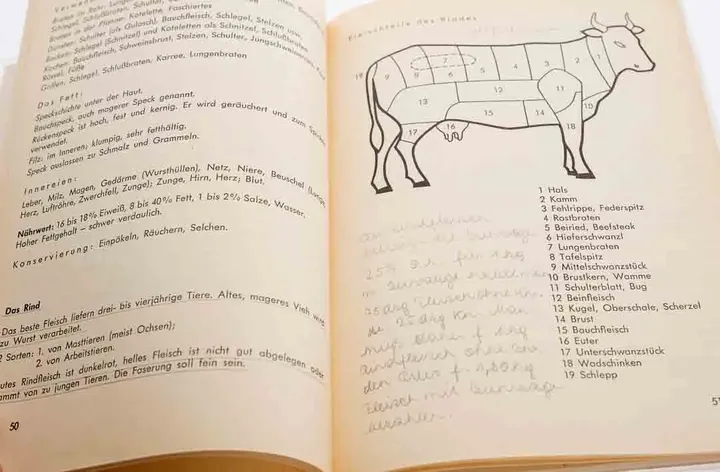 Braten in Rohr: Lung
Schlegel, Schlußbraten, Schulter,
Braten in der Pfanne: Kotelette, Faschiertes
Dünsten: Schulter (als Gulasch), Bauchfleisch, Schlegel, Stelzen usw.
Backen: Schlegel (Schnitzel) und Koteletten als Schnitzel, Schlußbraten
Kochen: Bauchfleisch, Schweinsbrust, Stelzen, Schulter, Jungschweinernes,
Rüssel, Füße
Grillen: Schlegel, Schlußbraten, Karree, Lungenbraten
Das Fett:
Speckschichte unter der Haut.
Bauchspeck, auch magerer Speck genannt.
Rückenspeck ist hoch, fest und kernig. Er wird geräuchert und zum Spicken
verwendet.
Filz: im Inneren; klumpig, sehr fetthältig.
Speck auslassen zu Schmalz und Grammeln.
Innereien:
Leber, Milz, Magen, Gedärme (Wursthüllen), Netz, Niere, Beuschel (Lunge,
Herz, Luftröhre, Zwerchfell, Zunge); Zunge, Hirn, Herz; Blut.
Nährwert: 16 bis 18% Eiweiß, 8 bis 40% Fett, 1 bis 2% Salze, Wasser.
Hoher Fettgehalt – schwer verdaulich.
Konservierung: Einpökeln, Räuchern, Selchen.
Das Rind
Das beste Fleisch liefern drei- bis vierjährige Tiere. Altes, mageres Vieh wird
zu Wurst verarbeitet.
2 Sorten: 1. von Masttieren (meist Ochsen);
2. von Arbeitstieren.
Gutes Rindfleisch ist dunkelrot, helles Fleisch ist nicht gut abgelegen oder
stammt von zu jungen Tieren. Die Faserung soll fein sein.
50
Fleischteile des Rindes
19 9 8 7 6 5 4 3 2 1
13 12 11 10
17 16 15 14 18
1 Hals
2 Kamm
3 Fehlrippe, Federspitz
4 Rostbraten
5 Beiried, Beefsteak
6 Hieferschwanzl
7 Lungenbraten
8 Tafelspitz
9 Mittelschwanzstück
10 Brustkern, Wamme
11 Schulterblatt, Bug
12 Beinfleisch
13 Kugel, Oberschale, Scherzel
14 Brust
15 Bauchfleisch
16 Euter
17 Unterschwanzstück
18 Wadschinken
19 Schlepp
25% 
Fleisch mit Zuwaage
bezahlen.
51